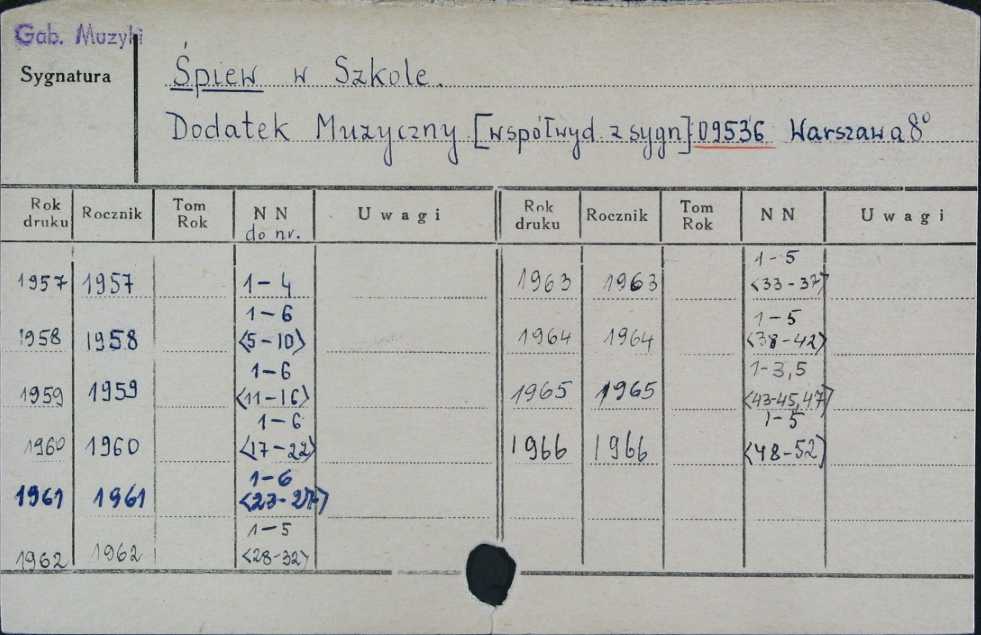 Gab. Muzyki
Sygnatura
Śpiew w Szkole.
Dodatek Muzyczny [współwyd. z sygn] 09536 Warszawa 8°
Rok druku Rocznik Tom Rok NN do nr. Uwagi Rok druku Rocznik Tom Rok NN Uwagi
1957 1957 1-4 1963 1963 1-5 <33-37>
1958 1958 1-6 <5-10> 1964 1964 1-5 <38-42>
1959 1959 1-6 <11-16> 1965 1965 1-3,5 <43-45,47>
1960 1960 1-6 <17-22> 1966 1966 1-5 <48-52>
1961 1961 1-6 <23-27>
1962 1962 1-5 <28-32>